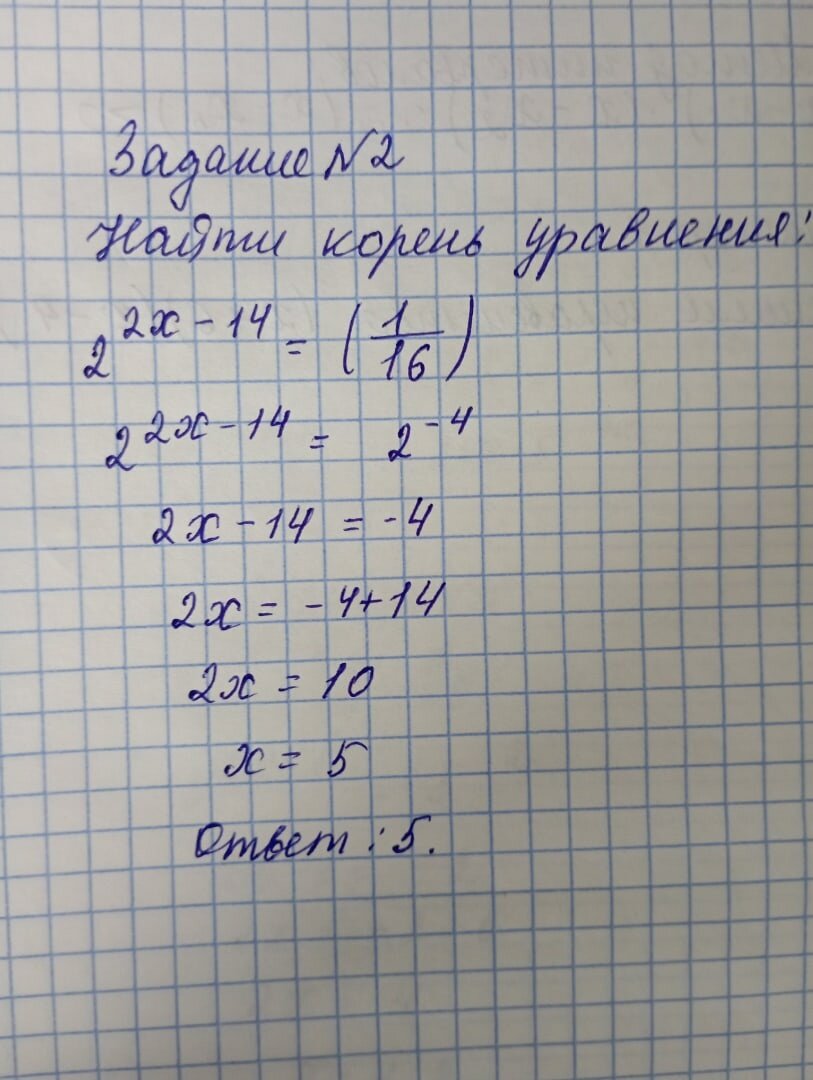 Задание №2
Найти корень уравнения:
2^{2x-14} = (1/16)
2^{2x-14} = 2^{-4}
2x - 14 = -4
2x = -4+14
2x = 10
x = 5
Ответ: 5.